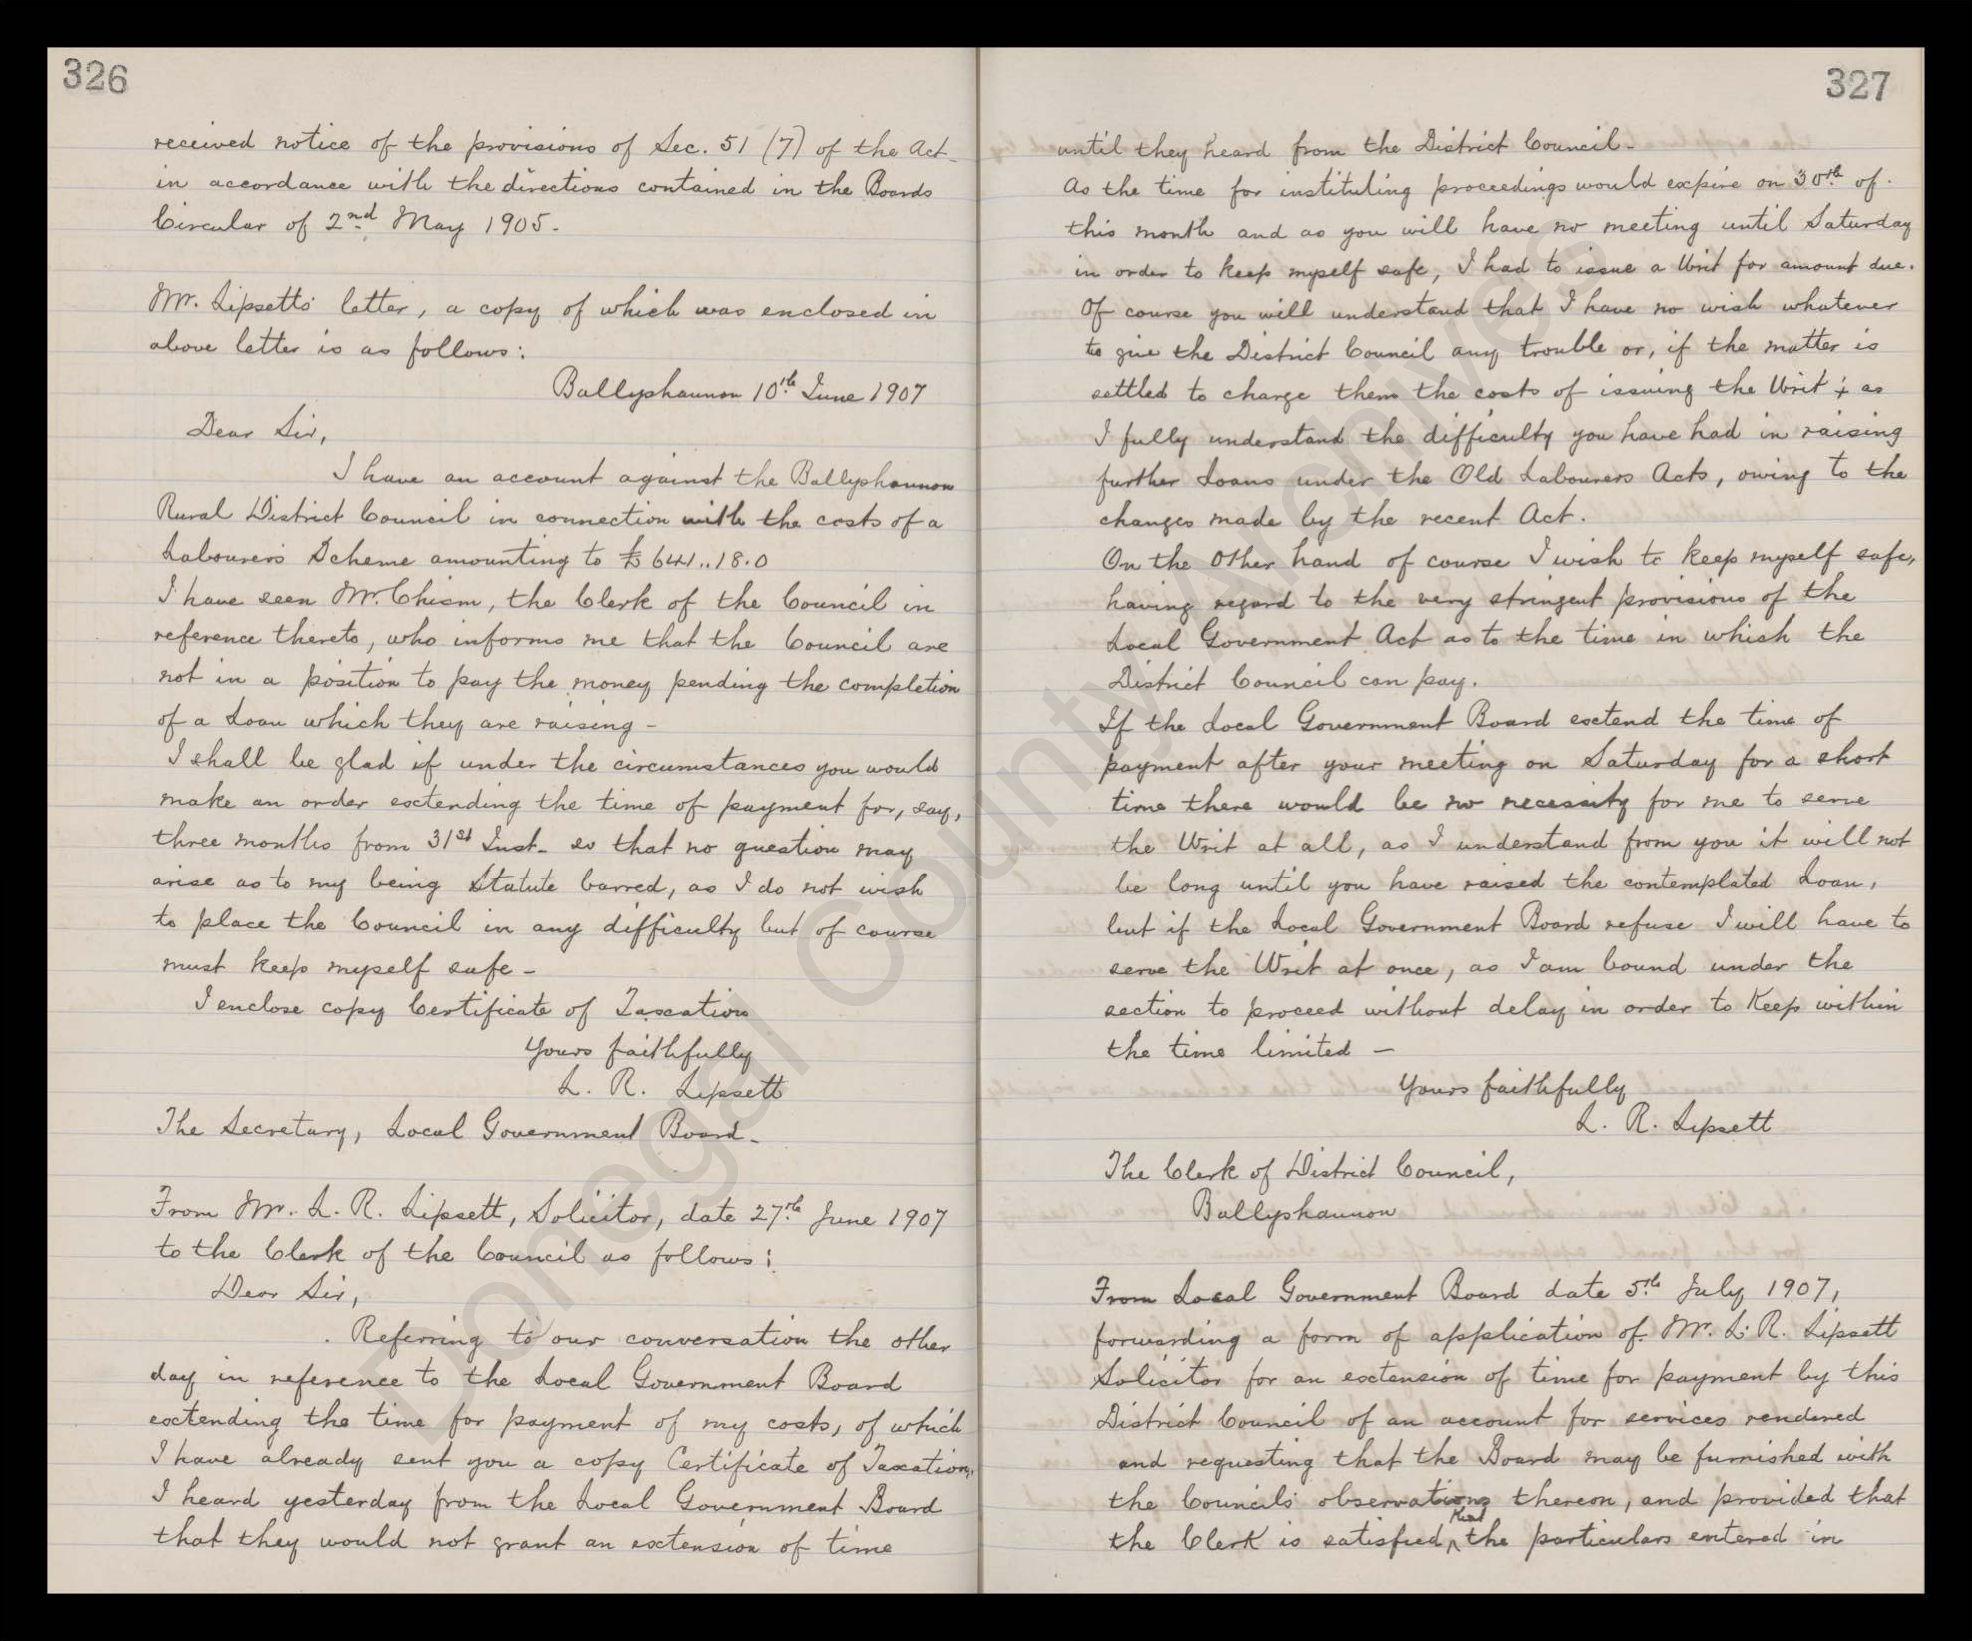 326
received notice of the provisions of Sec. 51 (7) of the Act
in accordance with the directions contained in the Boards
Circular of 2nd May 1905.
Mr. Lipsetts' letter, a copy of which was enclosed in
above letter is as follows:
Ballyshannon 10th June 1907
Dear Sir,
I have an account against the Ballyshannon
Rural District Council in connection with the costs of a
Labourers Scheme amounting to £641..18.0
I have seen Mr. Chism, the Clerk of the Council in
reference thereto, who informs me that the Council are
not in a position to pay the money pending the completion
of a Loan which they are raising -
I shall be glad if under the circumstances you would
make an order extending the time of payment for, say,
three months from 31st Inst. so that no question may
arise as to my being Statute barred, as I do not wish
to place the Council in any difficulty but of course
must keep myself safe -
I enclose copy Certificate of Taxation
Yours faithfully
L. R. Lipsett
The Secretary, Local Government Board -
From Mr. L. R. Lipsett, Solicitor, date 27th June 1907
to the Clerk of the Council as follows:
Dear Sir,
Referring to our conversation the other
day in reference to the Local Government Board
extending the time for payment of my costs, of which
I have already sent you a copy Certificate of Taxation,
I heard yesterday from the Local Government Board
that they would not grant an extension of time
327
until they heard from the District Council -
As the time for instituting proceedings would expire on 30th of
this month and as you will have no meeting until Saturday
in order to keep myself safe, I had to issue a Writ for amount due.
Of course you will understand that I have no wish whatever
to give the District Council any trouble or, if the matter is
settled to charge them the costs of issuing the Writ; as
I fully understand the difficulty you have had in raising
further Loans under the Old Labourers Acts, owing to the
changes made by the recent Act.
On the Other hand of course I wish to keep myself safe,
having regard to the very stringent provisions of the
Local Government Act as to the time in which the
District Council can pay.
If the Local Government Board extend the time of
payment after your meeting on Saturday for a short
time there would be no necessity for me to serve
the Writ at all, as I understand from you it will not
be long until you have raised the contemplated Loan,
but if the Local Government Board refuse I will have to
serve the Writ at once, as I am bound under the
section to proceed without delay in order to Keep within
the time limited -
Yours faithfully
L. R. Lipsett
The Clerk of District Council,
Ballyshannon
From Local Government Board date 5th July 1907,
forwarding a form of application of Mr. L. R. Lipsett
Solicitor for an extension of time for payment by this
District Council of an account for services rendered
and requesting that the Board may be furnished with
the Councils' observations thereon, and provided that
the Clerk is satisfied that the particulars entered in
Donegal County Archives